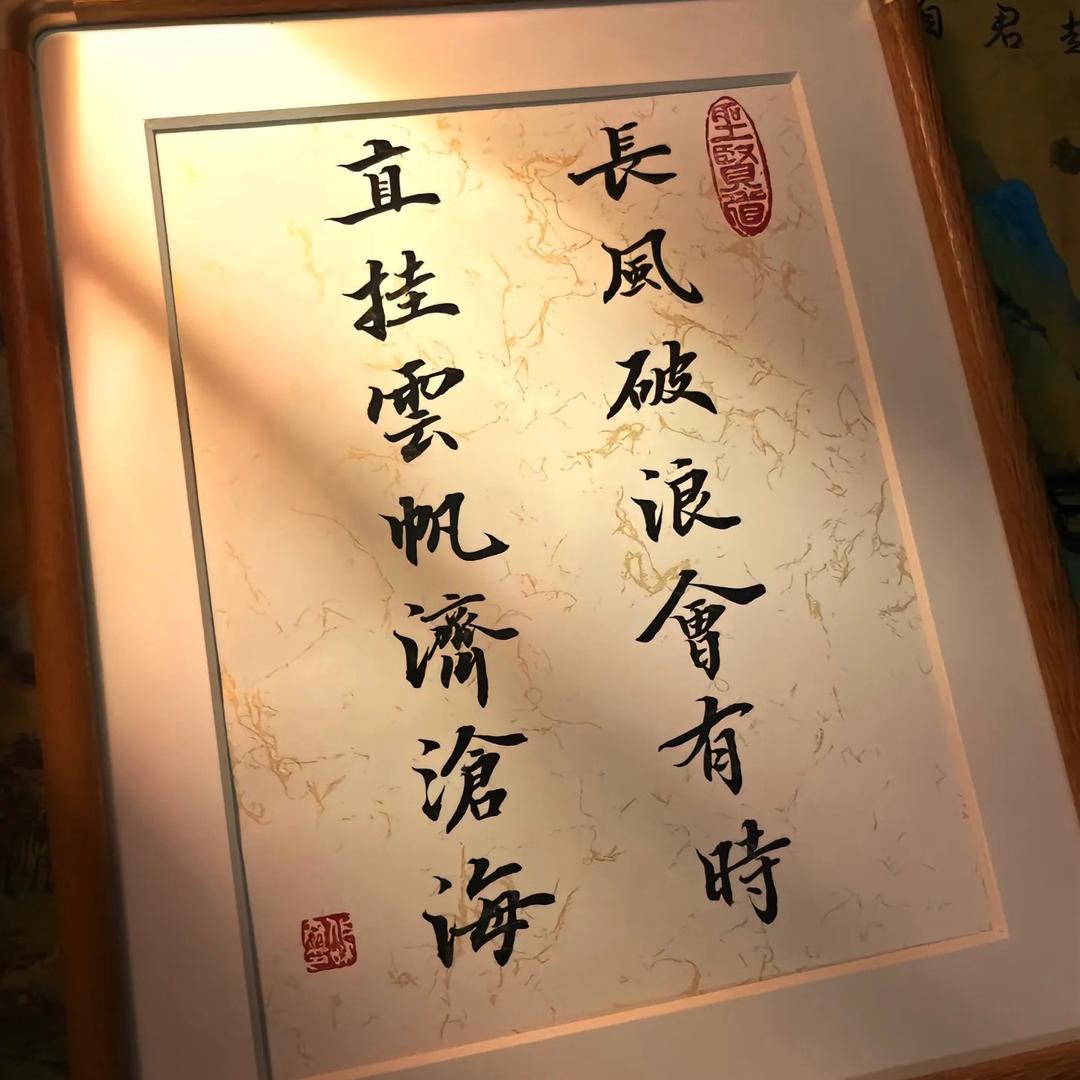 聖賢道
長風破浪會有時
直挂雲帆濟滄海
君